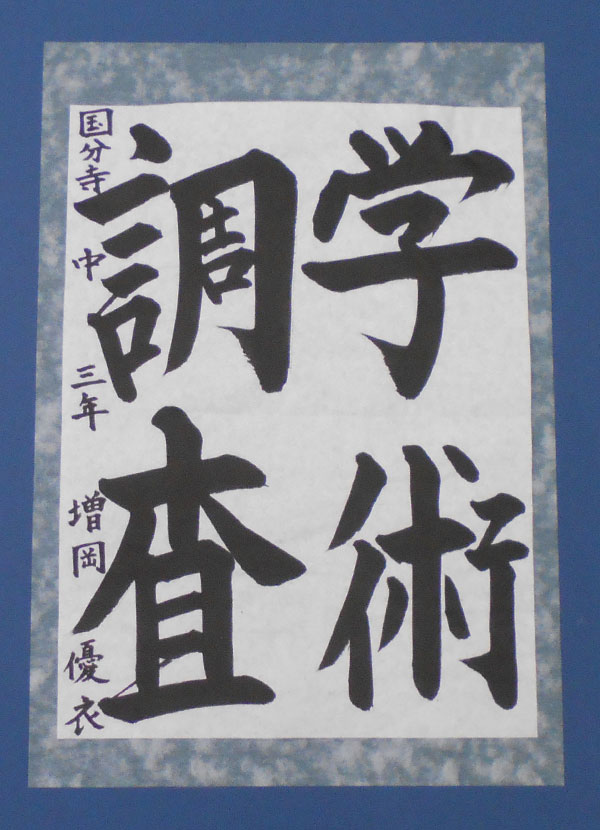 学術
調査
国分寺中 三年 増岡 優衣